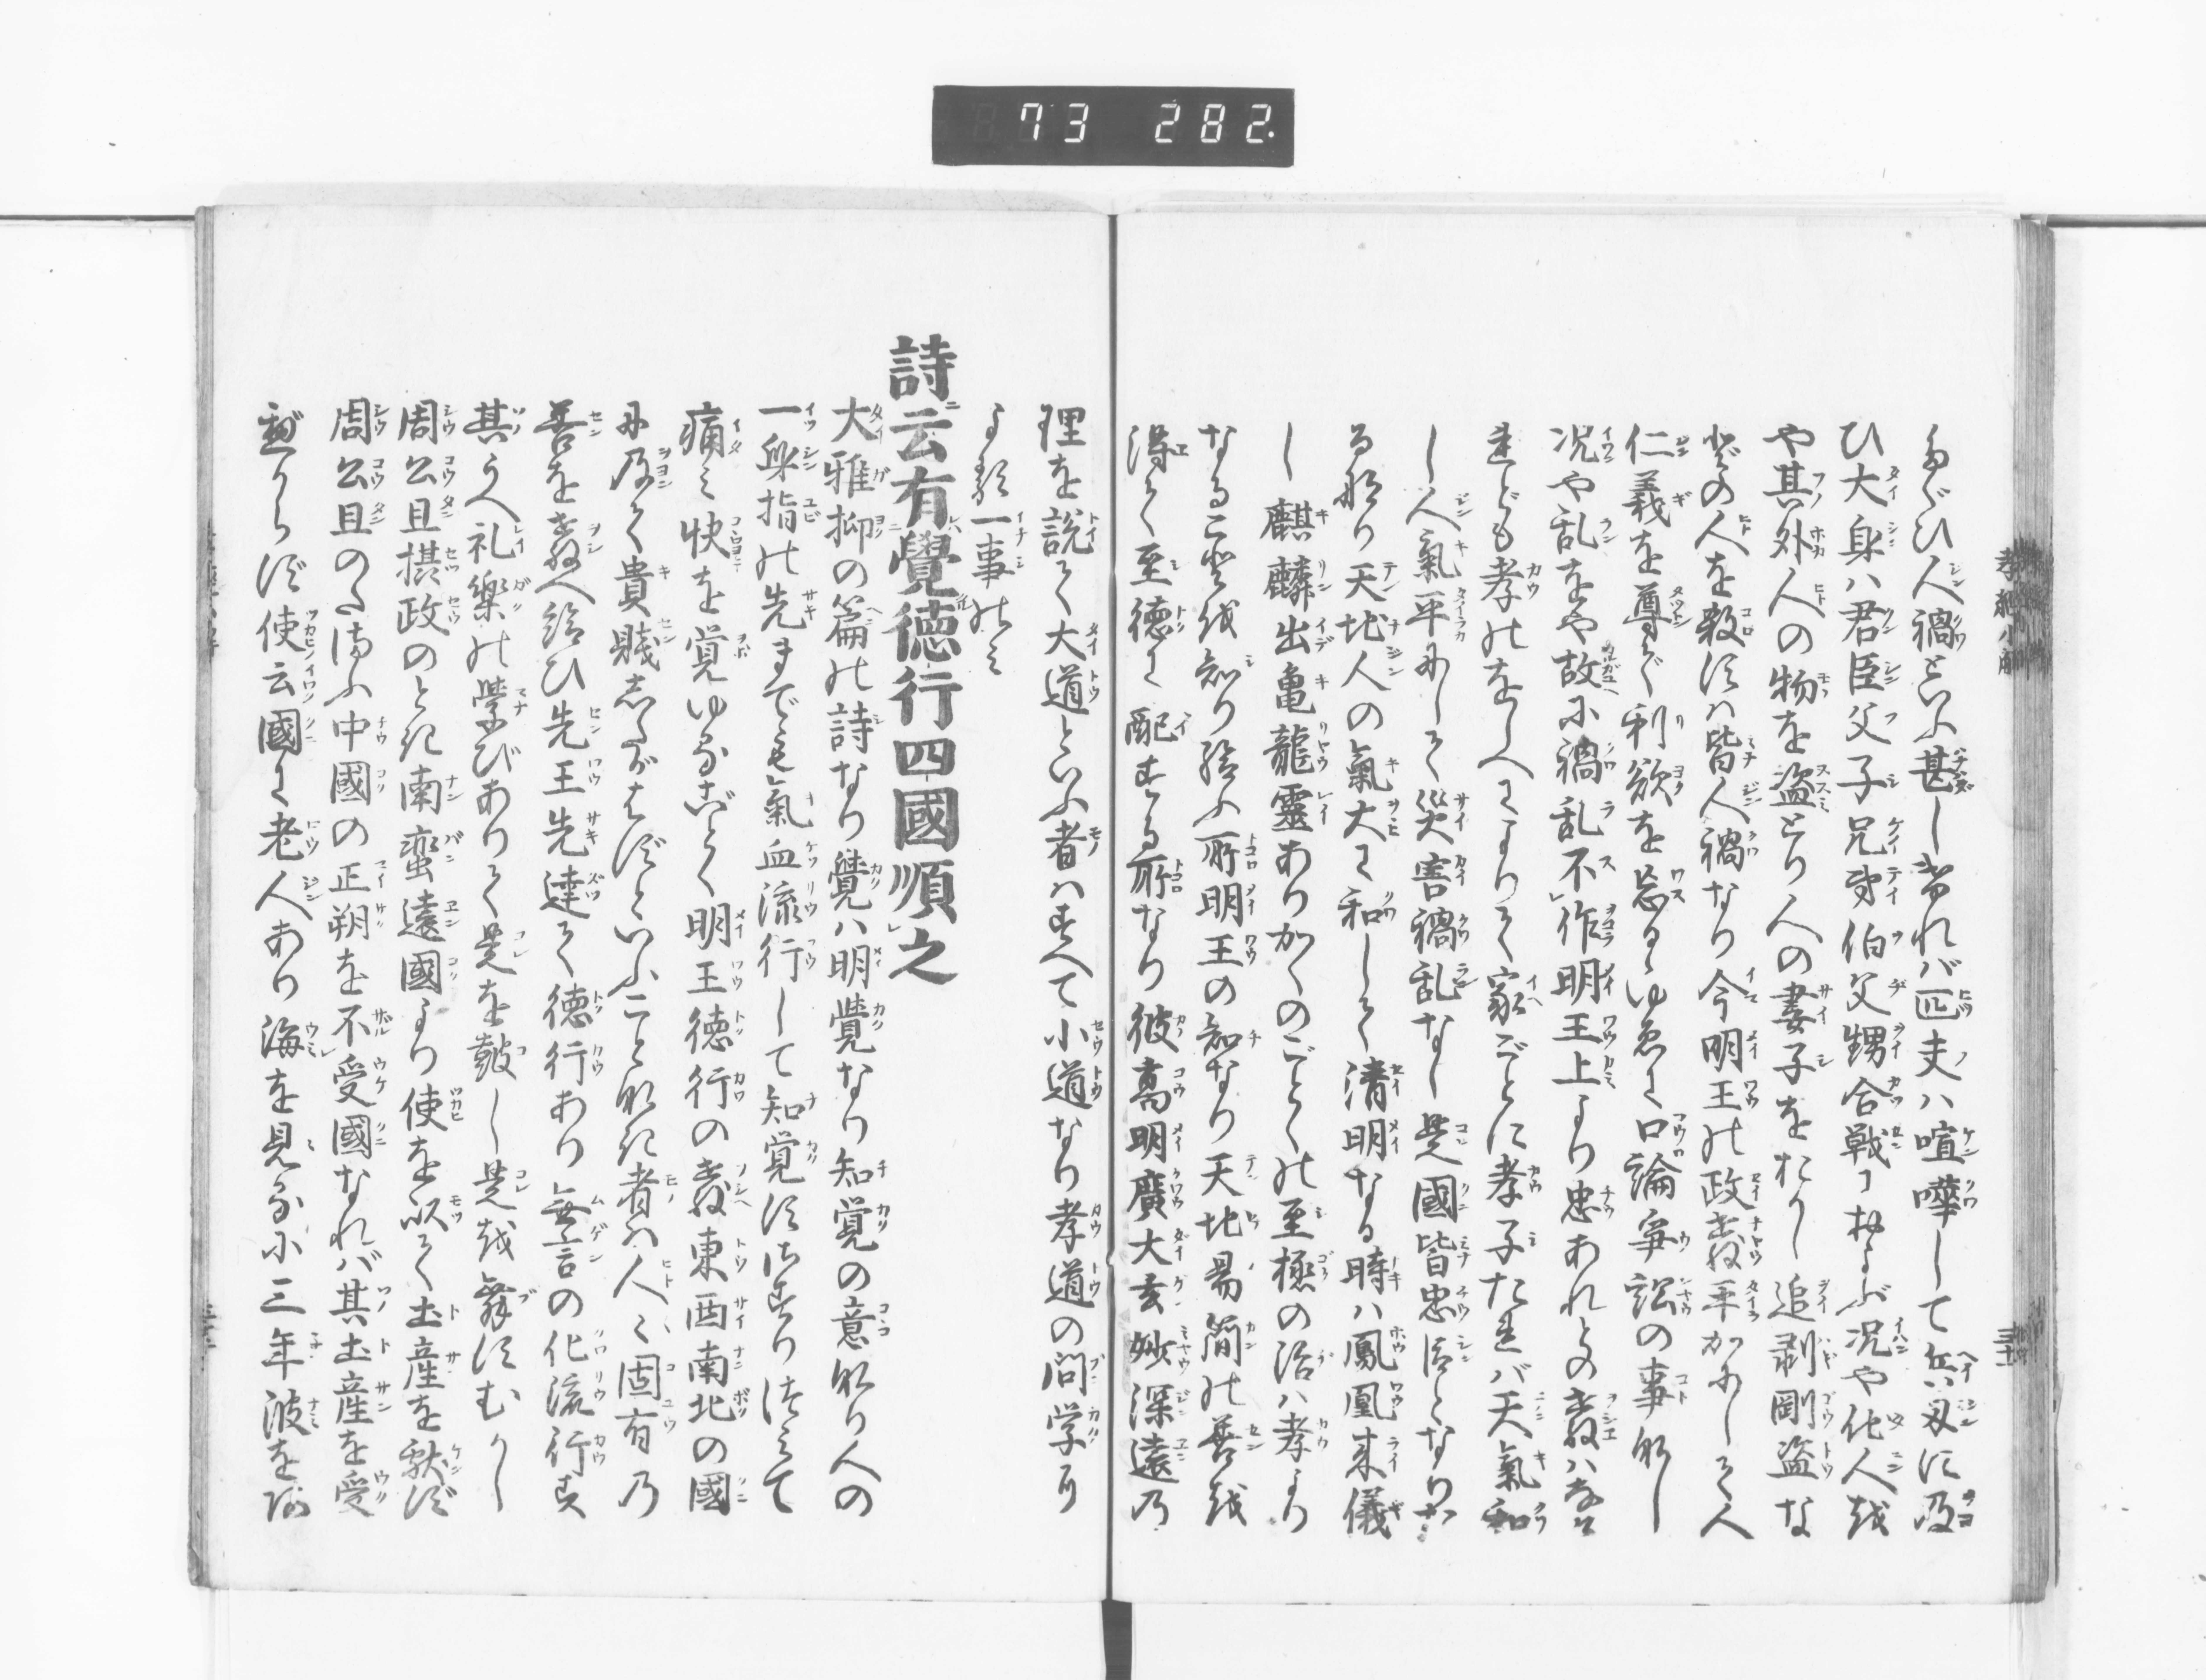 73 282.
ひ人禍といふ甚しけれバ匹夫ハ喧嘩して兵刄に及
ひ大身ハ君臣父子兄弟伯父甥合戦におよぶ况や他人を
や其外人の物を盗とり人の妻子をおかし追剥剛盗な
どの人を殺すハ皆人禍なり今明王の政教平かにして人
仁義を尊で利欲を忘るゝゆゑに口論爭訟の事なし
况や乱をや故に禍乱不作明王上より忠あれとの教ハな
けれども孝のをしへによりて家ごとに孝子たれバ天氣和
し人氣平にして災害禍乱なし是國皆忠臣となりた
る也り天地人の氣大に和して清明なる時ハ鳳凰来儀
し麒麟出亀龍靈ありかくのごとくの至極の治ハ孝より
なることを知り給ふ所明王の知なり天地易簡の善を
得て至徳に配する所なり彼高明廣大玄妙深遠乃
理を説て大道といふ者ハすべて小道なり孝道の問学
より一事のミ
詩云有覺徳行四國順之
大雅抑の篇の詩なり覺ハ明覺なり知覚の意なり人の
一身指の先までも氣血流行して知覚すれり
痛ミ快を覚ゆるごとく明王徳行の教東西南北の國
に及て貴賤したがはずといふことなき者ハ人々固有乃
善を教へ給ひ先王先達て徳行あり無言の化流行す
其うへ礼樂の学びありて是を鼓し是を舞すむかし
周公旦摂政のとき南蛮遠國より使を以て土産を獻ず
周公旦のたまふ中國の正朔を不受國なれバ其土産を受
べからず使云國に老人あり海を見るに三年波を